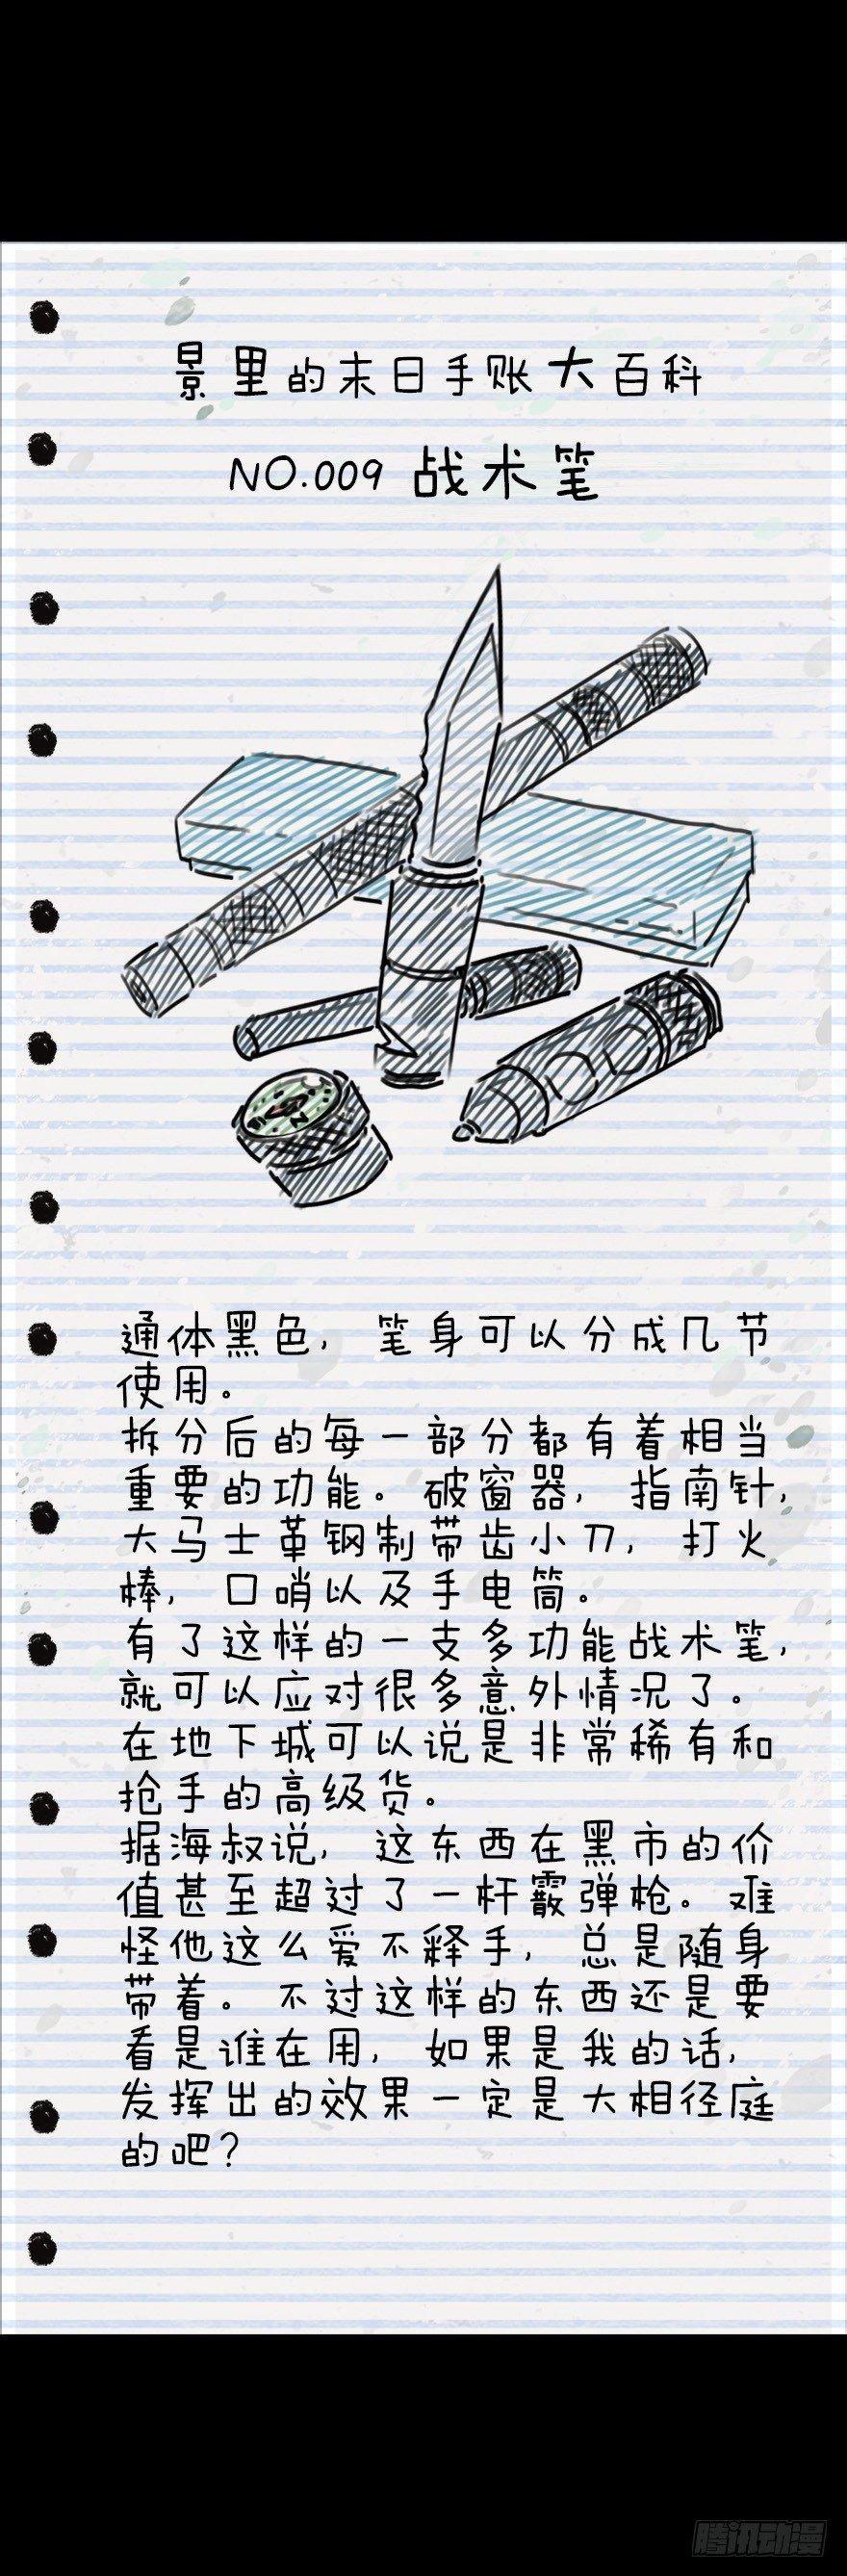 景里的末日手账大百科
NO.009 战术笔
通体黑色，笔身可以分成几节
使用。
拆分后的每一部分都有着相当
重要的功能。破窗器，指南针，
大马士革钢制带齿小刀，打火
棒，口哨以及手电筒。
有了这样的一支多功能战术笔，
就可以应对很多意外情况了。
在地下城可以说是非常稀有和
抢手的高级货。
据海叔说，这东西在黑市的价
值甚至超过了一杆霰弹枪。难
怪他这么爱不释手，总是随身
带着。不过这样的东西还是要
看是谁在用，如果是我的话，
发挥出的效果一定是大相径庭
的吧？
腾讯动漫